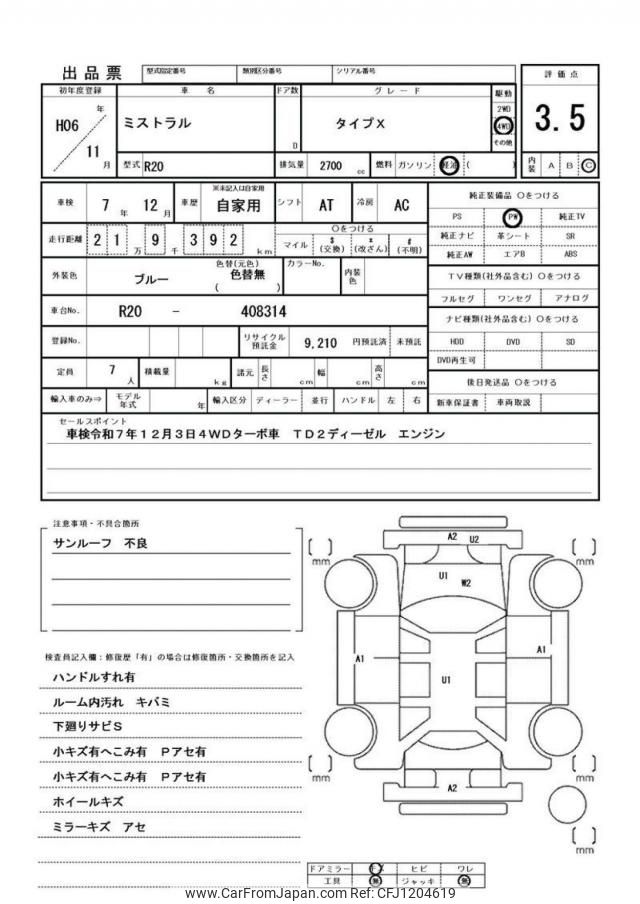 出品票 型式指定番号 類別区分番号 シリアル番号
評価点
初年度登録 車名 ドア数 グレード 駆動
H06 年 ミストラル タイプX 2WD
4WD
3.5
その他
11 月 D
型式 R20 排気量 2700 cc 燃料 ガソリン 軽油 ( ) 内装 A B C
車検 7 年 12 月 車歴 ※未記入は自家用 自家用 シフト AT 冷房 AC 純正装備品 〇をつける
PS PW 純正TV
走行距離 21 万 9 千 392 km 〇をつける
マイル $(交換) *(改ざん) #(不明) 純正ナビ 革シート SR
純正AW エアB ABS
外装色 ブルー 色替(元色) 色替無 ( ) カラーNo. 内装色 TV種類(社外品含む) 〇をつける
フルセグ ワンセグ アナログ
車台No. R20 - 408314 ナビ種類(社外品含む) 〇をつける
登録No. リサイクル預託金 9,210 円預託済 未預託 HDD DVD SD
DVD再生可
定員 7 人 積載量 kg 諸元 長さ cm 幅 cm 高さ cm 後日発送品 〇をつける
輸入車のみ⇒ モデル年式 年 輸入区分 ディーラー 並行 ハンドル 左 右 新車保証書 車両取説
セールスポイント
車検令和7年12月3日4WDターボ車 TD2ディーゼル エンジン
注意事項・不具合箇所
サンルーフ 不良
検査員記入欄:修復歴「有」の場合は修復箇所・交換箇所を記入
ハンドルすれ有
ルーム内汚れ キバミ
下廻りサビS
小キズ有へこみ有 Pアセ有
小キズ有へこみ有 Pアセ有
ホイールキズ
ミラーキズ アセ
A2 U2
[ ] mm [ ] mm
U1 W2
A1 A1
U1
[ ] mm [ ] mm
A2
[ ] mm
ドアミラー ヒビ ワレ
工具 無 ジャッキ 無
www.CarFromJapan.com CFJ1204619